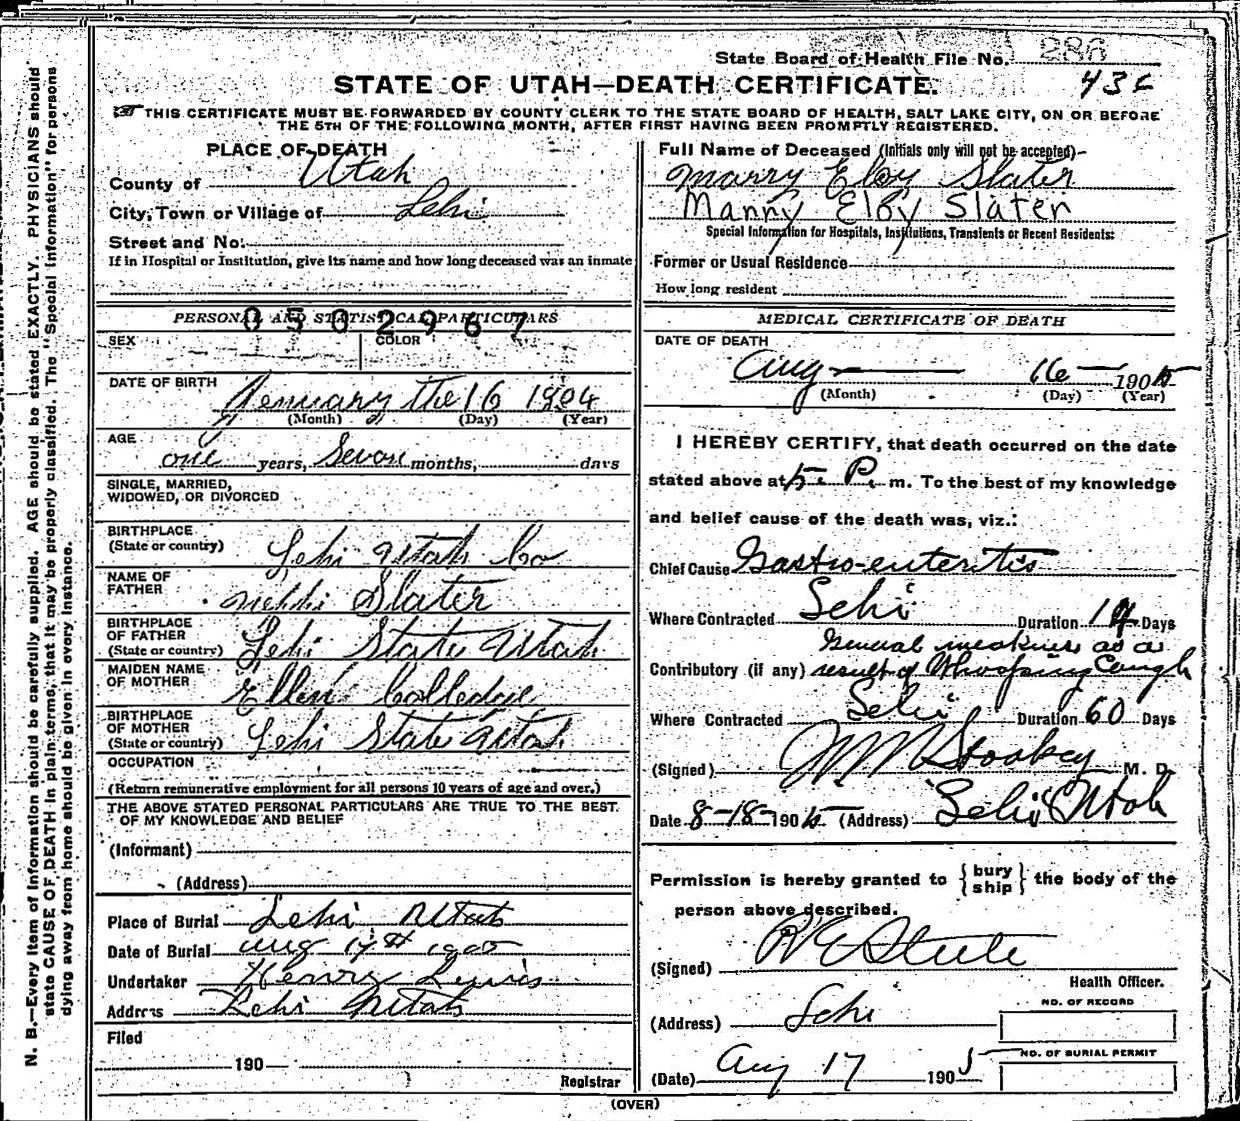 State Board of Health File No. 286
436
STATE OF UTAH—DEATH CERTIFICATE.
THIS CERTIFICATE MUST BE FORWARDED BY COUNTY CLERK TO THE STATE BOARD OF HEALTH, SALT LAKE CITY, ON OR BEFORE
THE 5TH OF THE FOLLOWING MONTH, AFTER FIRST HAVING BEEN PROMPTLY REGISTERED.
PLACE OF DEATH
County of Utah
City, Town or Village of Lehi
Street and No.
If in Hospital or Institution, give its name and how long deceased was an inmate
PERSONAL AND STATISTICAL PARTICULARS
0502967
SEX
COLOR
DATE OF BIRTH
January the 16 1904
(Month) (Day) (Year)
AGE
one years, Sevon months, days
SINGLE, MARRIED,
WIDOWED, OR DIVORCED
BIRTHPLACE
(State or country) Lehi Utah Co
NAME OF
FATHER Nehhi Slater
BIRTHPLACE
OF FATHER
(State or country) Lehi State Utah
MAIDEN NAME
OF MOTHER Ellen Colledge
BIRTHPLACE
OF MOTHER
(State or country) Lehi State Utah
OCCUPATION
(Return remunerative employment for all persons 10 years of age and over.)
THE ABOVE STATED PERSONAL PARTICULARS ARE TRUE TO THE BEST
OF MY KNOWLEDGE AND BELIEF
(Informant)
(Address)
Place of Burial Lehi Utah
Date of Burial Aug 17th 1905
Undertaker Henry Lewis
Address Lehi Utah
Filed
190
Registrar
Full Name of Deceased (Initials only will not be accepted)—
Manny Elby Slater
Manny Elby Slater
Special Information for Hospitals, Institutions, Transients or Recent Residents:
Former or Usual Residence
How long resident
MEDICAL CERTIFICATE OF DEATH
DATE OF DEATH
Aug 16 1905
(Month) (Day) (Year)
I HEREBY CERTIFY, that death occurred on the date
stated above at 5 P. m. To the best of my knowledge
and belief cause of the death was, viz.:
Chief Cause Gastro-enteritis
Where Contracted Lehi Duration 14 Days
General weakness as a
Contributory (if any) result of Whooping Cough
Where Contracted Lehi Duration 60 Days
(Signed) Stookey M. D.
Date 8-18-1905 (Address) Lehi Utah
Permission is hereby granted to { bury ship } the body of the
person above described.
(Signed) R E Steele
Health Officer.
(Address) Lehi
NO. OF RECORD
(Date) Aug 17 1905
NO. OF BURIAL PERMIT
(OVER)
N. B.—Every item of information should be carefully supplied. AGE should be stated EXACTLY. PHYSICIANS should
state CAUSE OF DEATH in plain terms, that it may be properly classified. The "Special Information" for persons
dying away from home should be given in every instance.